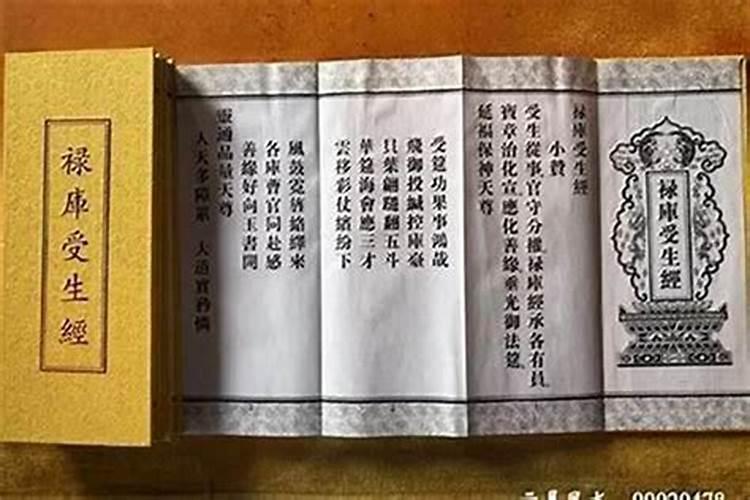 禄庫受生經
禄庫受生經
禄庫受生經
小贊
受生從事官守分權禄庫經承各有員
寶章治化宣應化善緣垂光御法筵
延福保神天尊
受筵功果事鴻哉
飛御投緘控庫臺
貝葉翩翻五斗
華筵海會應三才
雲移彩仗繽紛下
風鼓霓旌絡繹來
各庫曹官同赴感
善緣好向玉書開
靈通品量天尊
人天多障累 大道實矜憐
99029478